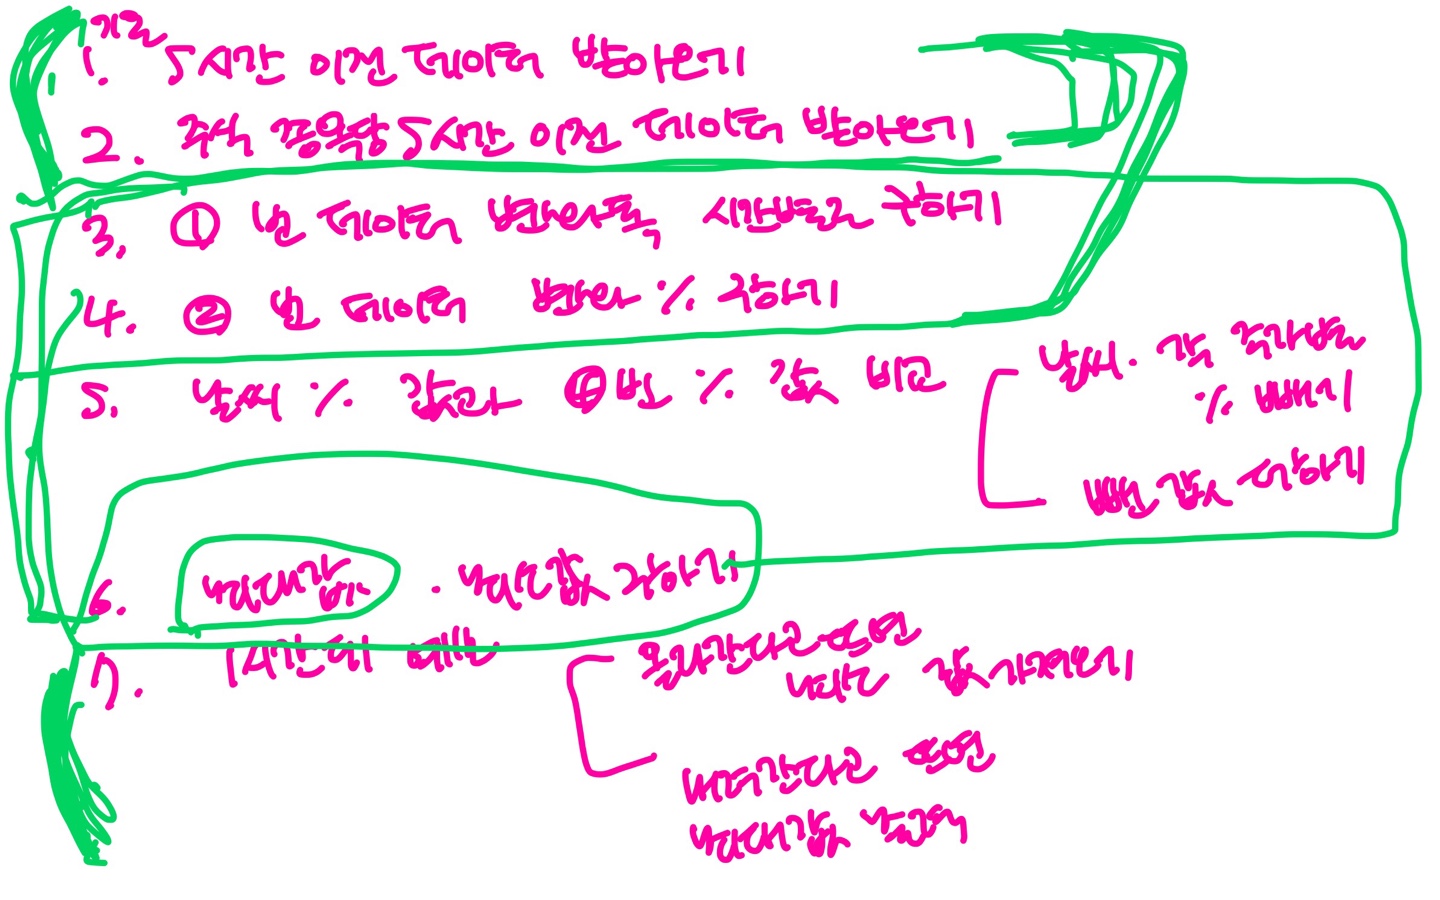 기온
1. 5시간 이전 데이터 받아오기
2. 주식 종목당 5시간 이전 데이터 받아오기
3. ① 번 데이터 변화폭 시간별로 구하기
4. ② 번 데이터 변화 % 구하기
5. 날씨 % 값과 ④번 % 값 비교
날씨. 각 주가별
% 빼기
뺀 값 더하기
6. 최대값. 최소값 구하기
7. 1시간 뒤 예측
올라간다고 뜨면
최소 값 가져오기
내려간다고 뜨면
최대값